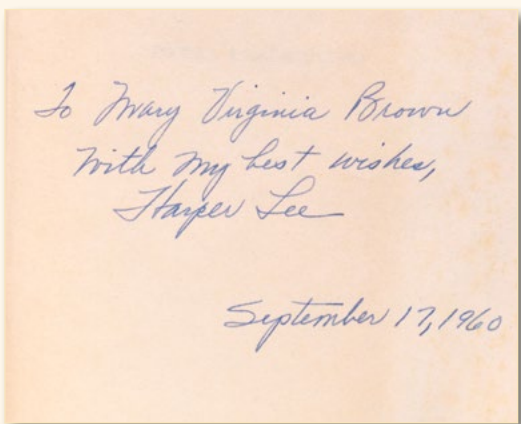 To Mary Virginia Brown
With my best wishes,
Harper Lee
September 17, 1960